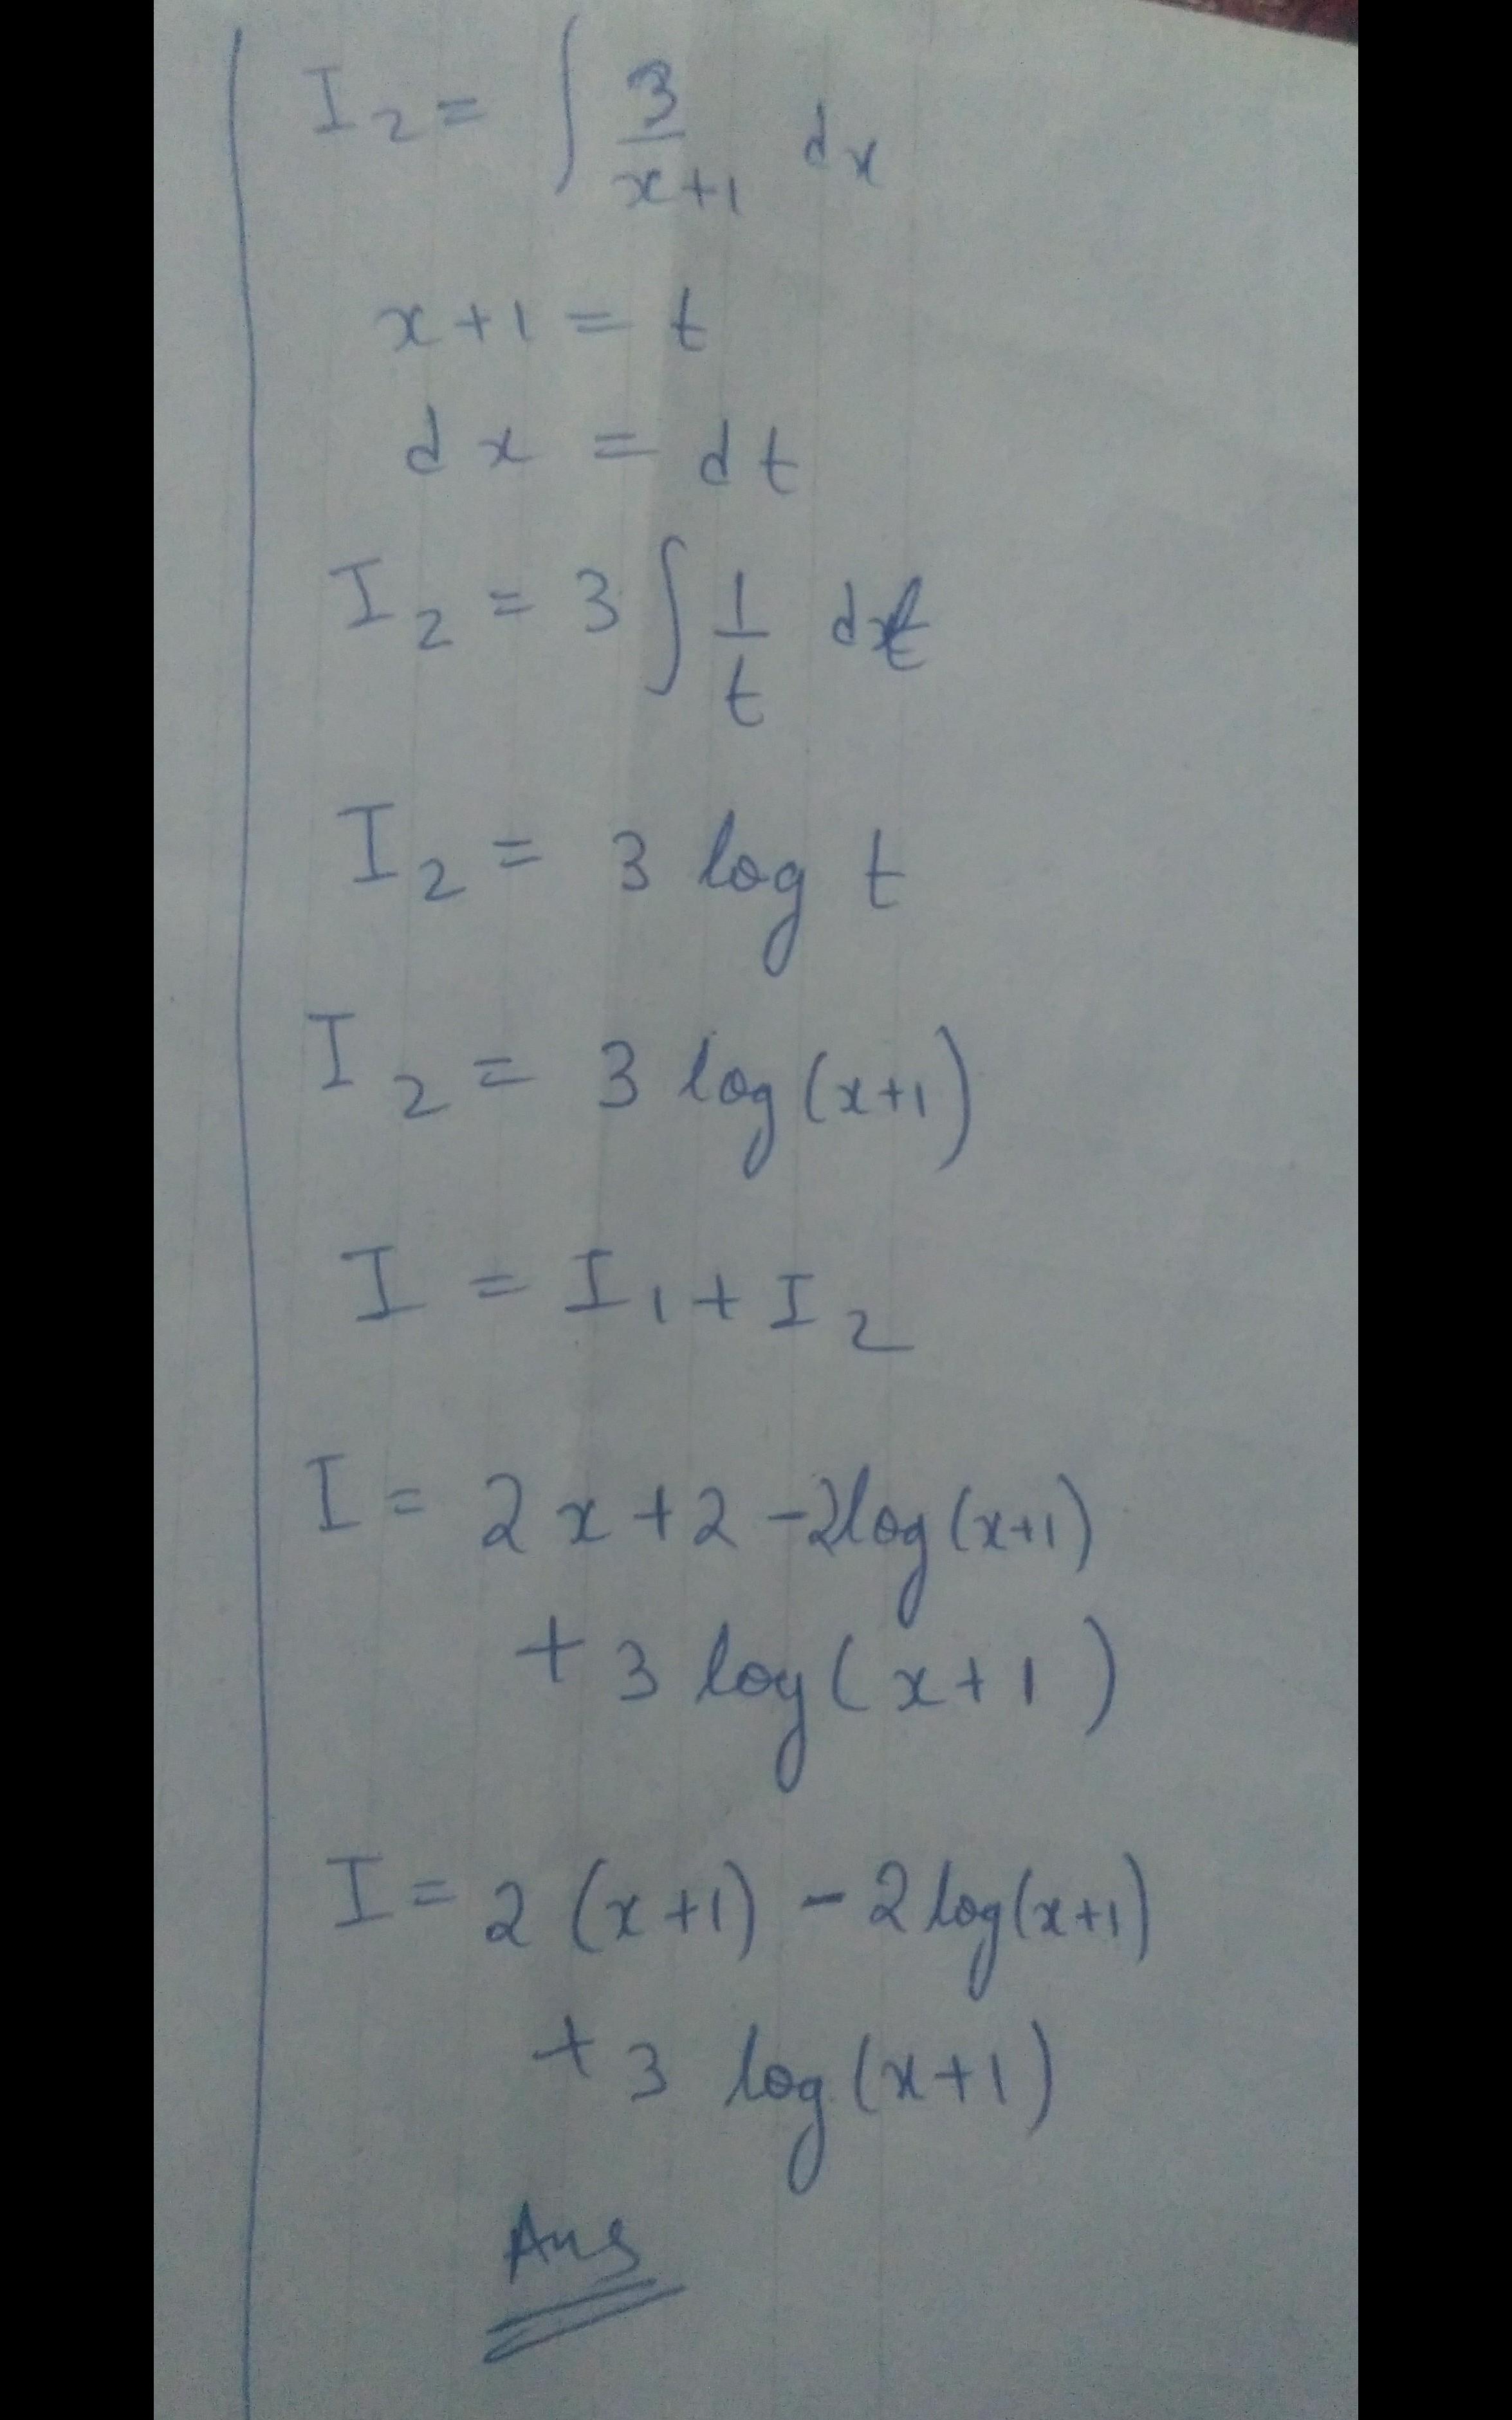 I₂ = ∫ 3/(x+1) dx
x+1 = t
dx = dt
I₂ = 3 ∫ 1/t dt
I₂ = 3 log t
I₂ = 3 log(x+1)
I = I₁ + I₂
I = 2x+2 -2log(x+1)
+ 3 log(x+1)
I = 2 (x+1) - 2 log(x+1)
+ 3 log(x+1)
Ans